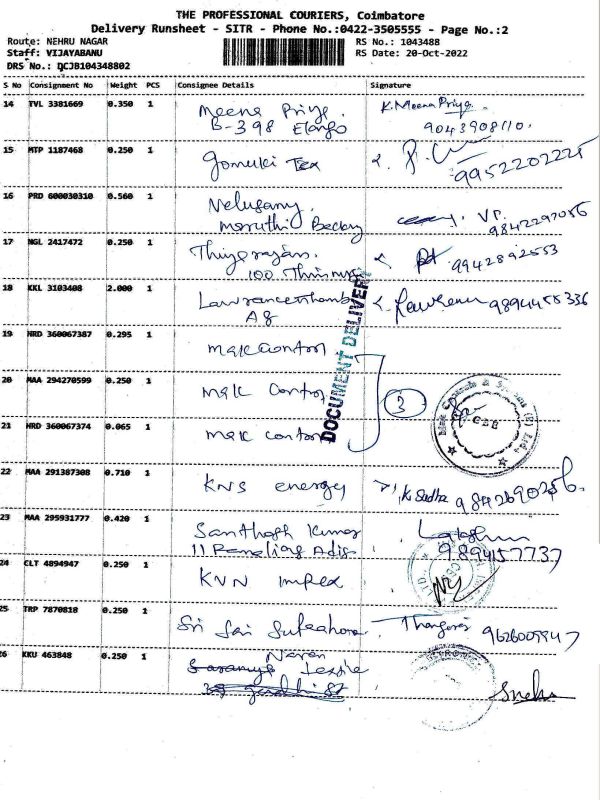 THE PROFESSIONAL COURIERS, Coimbatore
Delivery Runsheet - SITR - Phone No.:0422-3505555 - Page No.:2
Route: NEHRU NAGAR
Staff: VIJAYABANU
DRS No.: DCJB104348802
RS No.: 1043488
RS Date: 20-Oct-2022
S No Consignment No Weight PCS Consignee Details Signature
14 TVL 3381669 0.350 1 Meena Priya. K. Meena Priya.
B-398 Elango 9043908110.
15 MTP 1187468 0.250 1 Gomuki Tex
9952202225
16 PRD 600030310 0.560 1 Velusamy,
Maruthi VP.
9842297056
17 NGL 2417472 0.250 1 Thiyagarajan.
100. 9942892553
18 KKL 3103408 2.000 1 9894458336
DOCUMENT DELIVERY
19 HRD 360067387 0.295 1 M&K Control
20 MAA 294270599 0.250 1 M&K Control 3
21 HRD 360067374 0.065 1 M&K Control
CBE
22 MAA 291387308 0.710 1 KNS energy K. Sudha 9842690256.
23 MAA 295931777 0.420 1 Santhosh Kumar
11 9894157737
24 CLT 4894947 0.250 1 KNN impex
25 TRP 7870818 0.250 1 Sri Sai 
26 KKU 463848 0.250 1 Naran
Textile
Sneha